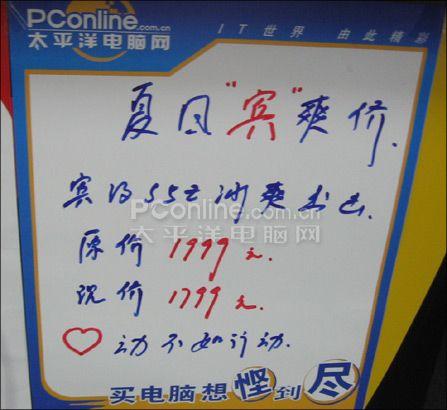 PConline.com.cn
太平洋电脑网
IT世界 由此精彩
夏日"宾"爽价.
宾得S5Z冰爽出击.
PConline.com.cn
太平洋电脑网
原价 1999元.
现价 1799元.
动不如行动.
买电脑想悭到尽